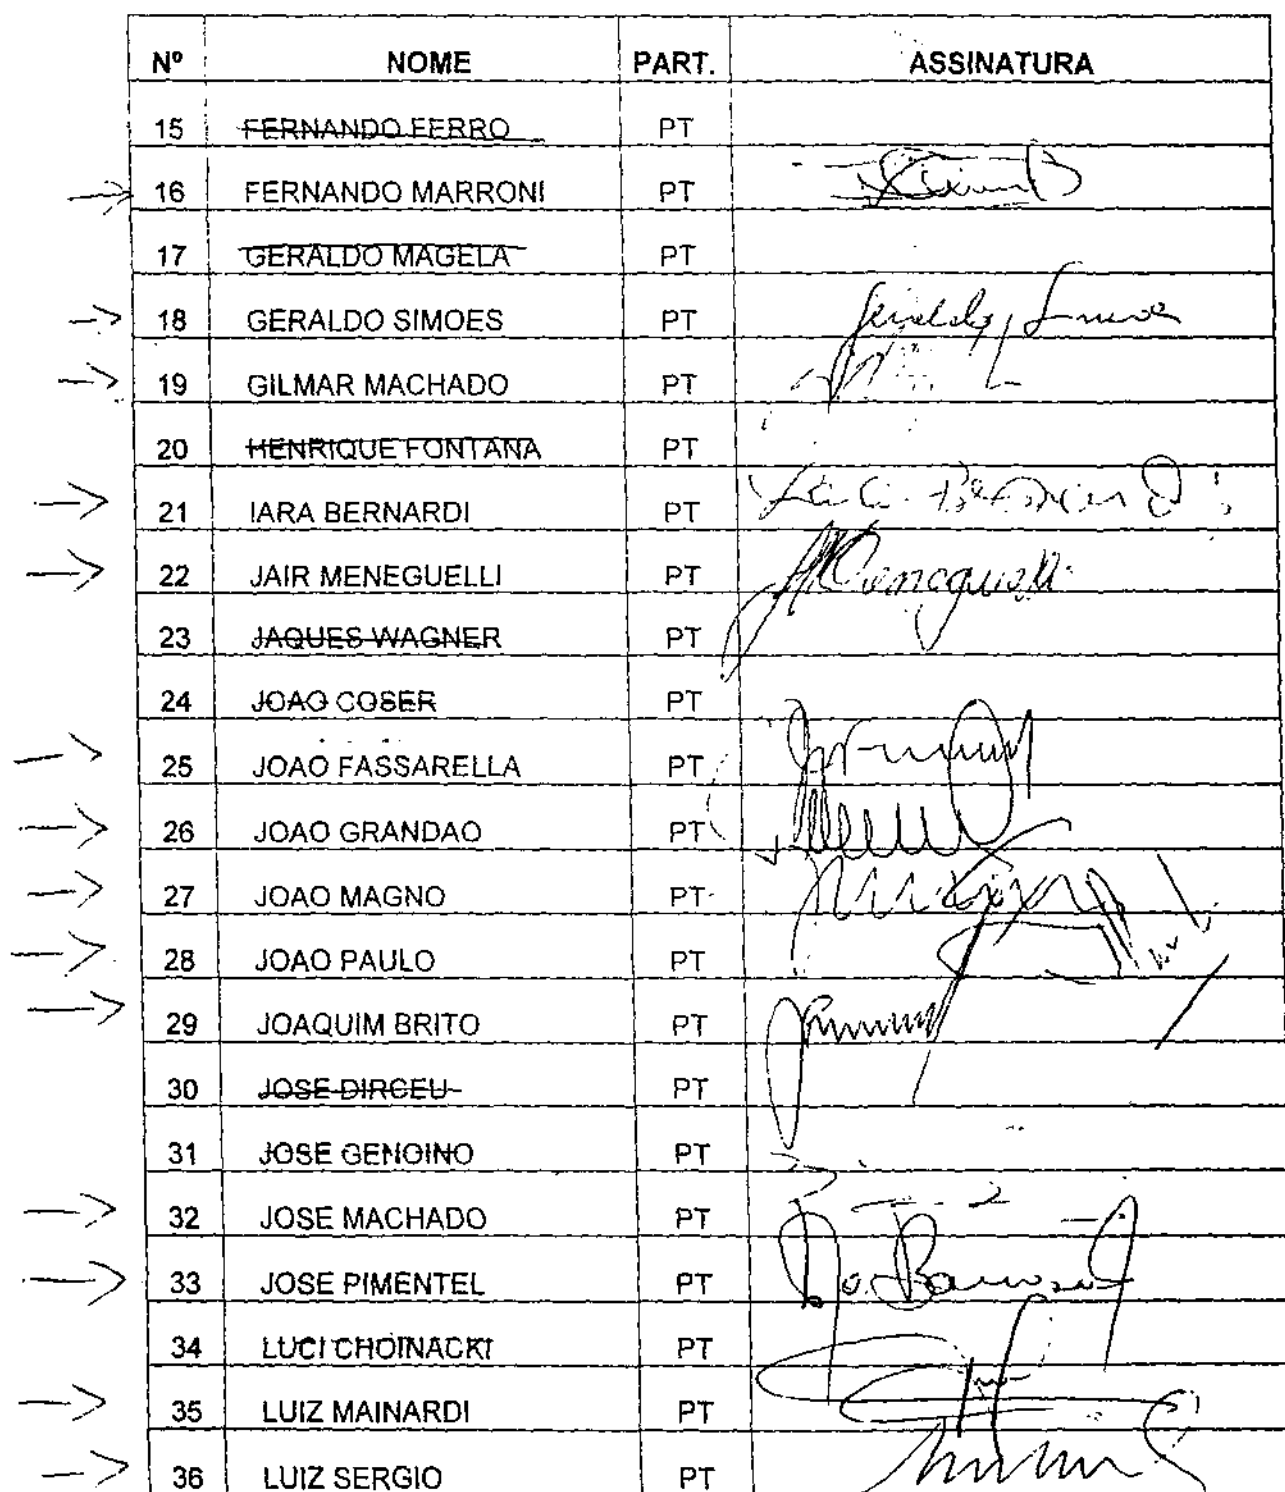 Nº NOME PART. ASSINATURA
15 FERNANDO FERRO PT
16 FERNANDO MARRONI PT
17 GERALDO MAGELA PT
18 GERALDO SIMOES PT
19 GILMAR MACHADO PT
20 HENRIQUE FONTANA PT
21 IARA BERNARDI PT Iara Bernardi
22 JAIR MENEGUELLI PT Meneguelli
23 JAQUES WAGNER PT
24 JOAO COSER PT
25 JOAO FASSARELLA PT
26 JOAO GRANDAO PT
27 JOAO MAGNO PT
28 JOAO PAULO PT
29 JOAQUIM BRITO PT
30 JOSE DIRCEU PT
31 JOSE GENOINO PT
32 JOSE MACHADO PT
33 JOSE PIMENTEL PT
34 LUCI CHOINACKI PT
35 LUIZ MAINARDI PT
36 LUIZ SERGIO PT